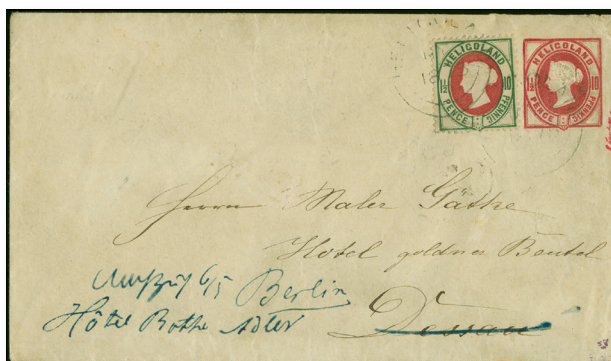 HELIGOLAND
1½ 10
PENCE PFENNIG
HELIGOLAND
1½ 10
PENCE PFENNIG
Herrn Maler Gätke
Hotel goldner Beutel
6/5 Berlin
Hôtel Rothe Adler
Dessau